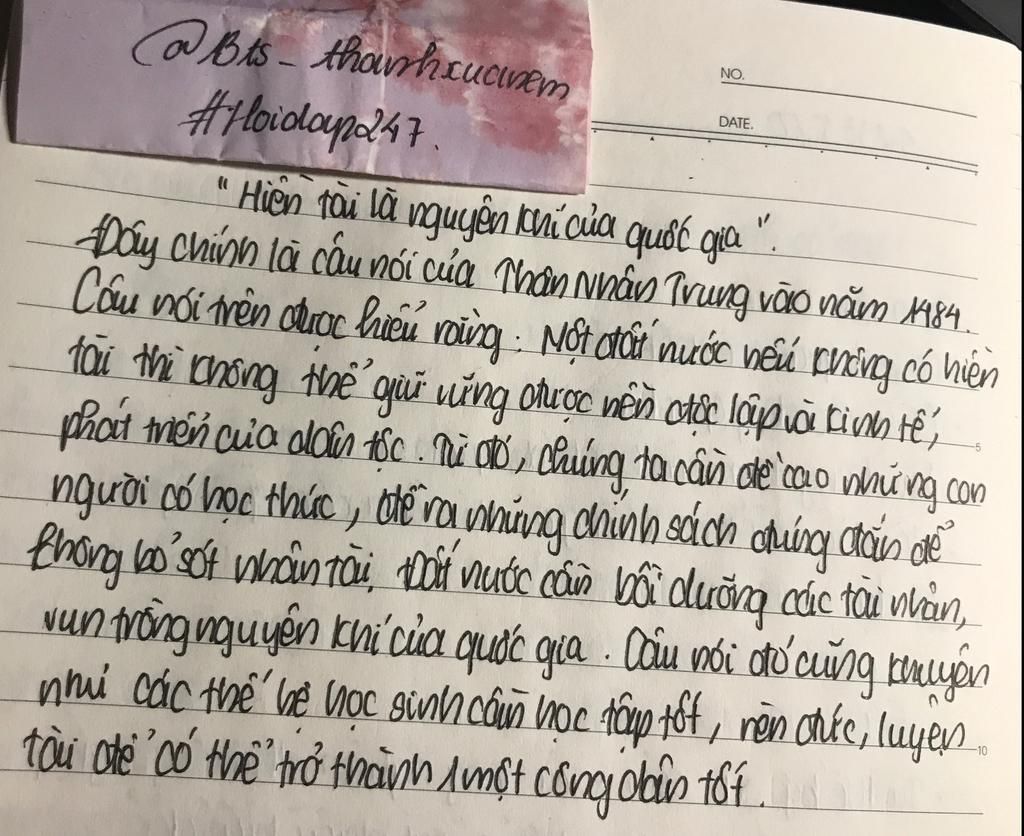 @Bts_thanhxuanem
#Hoidap247.
NO.
DATE.
"Hiền tài là nguyên khí của quốc gia".
Đây chính là câu nói của Thân Nhân Trung vào năm 1484.
Câu nói trên được hiểu rằng: Một đất nước nếu không có hiền
tài thì không thể giữ vững được nền độc lập và kinh tế,
phát triển của dân tộc. Từ đó, chúng ta cần đề cao những con
5
người có học thức, đề ra những chính sách đúng đắn để
không bỏ sót nhân tài. Đất nước cần bồi dưỡng các tài nhân,
vun trồng nguyên khí của quốc gia. Câu nói đó cũng khuyên
nhủ các thế hệ học sinh cần học tập tốt, rèn đức, luyện
10
tài để có thể trở thành 1 một công dân tốt.